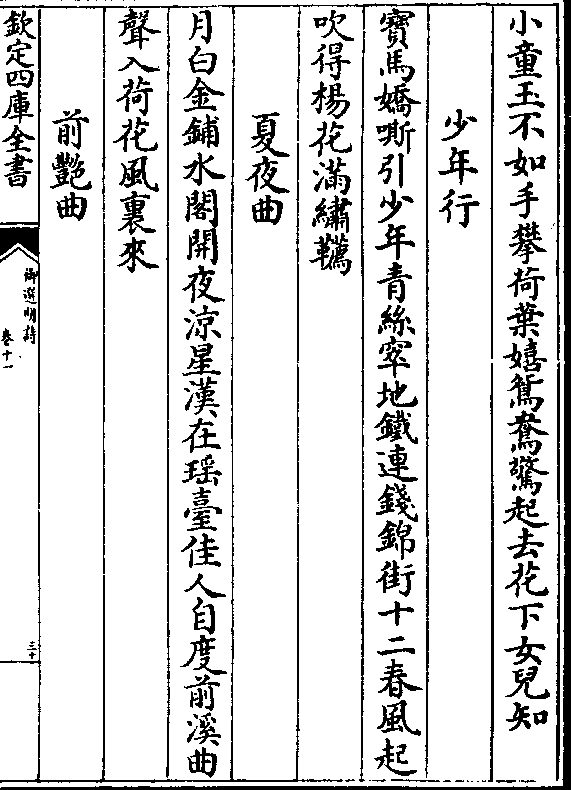 小童玉不如手攀荷葉嬉鴛鴦驚起去花下女兒知
少年行
寶馬嬌嘶引少年青絲窣地鐵連錢錦街十二春風起
吹得楊花滿繡韉
夏夜曲
月白金鋪水閣開夜涼星漢在瑶臺佳人自度前溪曲
聲入荷花風裏來
前艷曲
欽定四庫全書
御選明詩
卷十一
三十